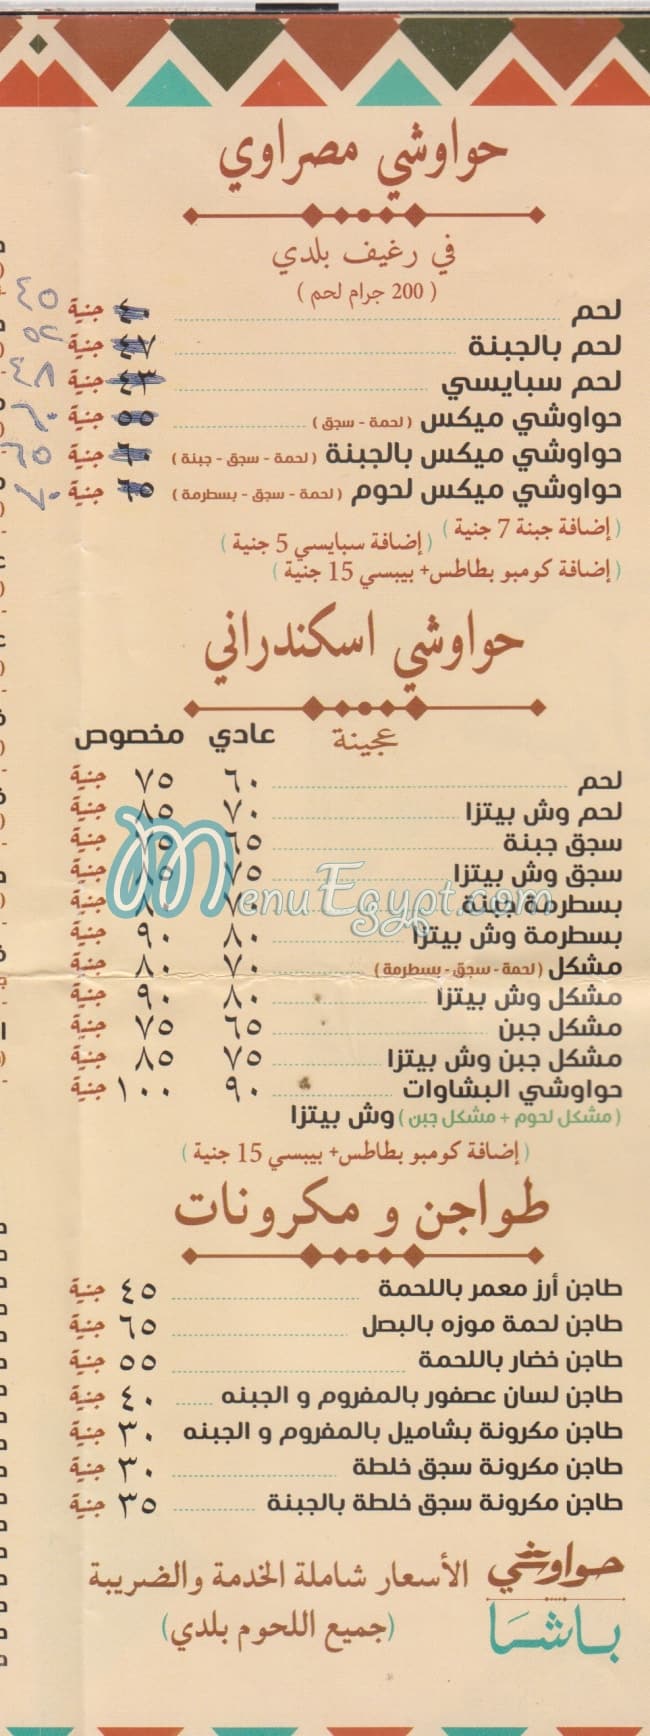 حواوشي مصراوي
في رغيف بلدي
( 200 جرام لحم )
لحم ٤٠ جنية ٤٥
لحم بالجبنة ٤٧ جنية ٥٢
لحم سبايسي ٤٣ جنية ٤٨
حواوشي ميكس ( لحمة - سجق ) ٥٥ جنية ٦٠
حواوشي ميكس بالجبنة ( لحمة - سجق - جبنة ) ٦٠ جنية ٦٥
حواوشي ميكس لحوم ( لحمة - سجق - بسطرمة ) ٦٥ جنية ٧٠
( إضافة جبنة 7 جنية ) ( إضافة سبايسي 5 جنية )
( إضافة كومبو بطاطس+ بيبسي 15 جنية )
حواوشي اسكندراني
عجينة عادي مخصوص
لحم ٦٠ ٧٥ جنية
لحم وش بيتزا ٧٠ ٨٥ جنية
سجق جبنة ٦٥ ٧٥ جنية
سجق وش بيتزا ٧٥ ٨٥ جنية
بسطرمة جبنة ٧٠ ٨٠ جنية
بسطرمة وش بيتزا ٨٠ ٩٠ جنية
مشكل ( لحمة - سجق - بسطرمة ) ٧٠ ٨٠ جنية
مشكل وش بيتزا ٨٠ ٩٠ جنية
مشكل جبن ٦٥ ٧٥ جنية
مشكل جبن وش بيتزا ٧٥ ٨٥ جنية
حواوشي البشاوات ٩٠ ١٠٠ جنية
( مشكل لحوم + مشكل جبن ) وش بيتزا
( إضافة كومبو بطاطس+ بيبسي 15 جنية )
MenuEgypt.com
طواجن و مكرونات
طاجن أرز معمر باللحمة ٤٥ جنية
طاجن لحمة موزه بالبصل ٦٥ جنية
طاجن خضار باللحمة ٥٥ جنية
طاجن لسان عصفور بالمفروم و الجبنه ٤٠ جنية
طاجن مكرونة بشاميل بالمفروم و الجبنه ٣٠ جنية
طاجن مكرونة سجق خلطة ٣٠ جنية
طاجن مكرونة سجق خلطة بالجبنة ٣٥ جنية
حواوشي باشا
الأسعار شاملة الخدمة والضريبة
(جميع اللحوم بلدي)